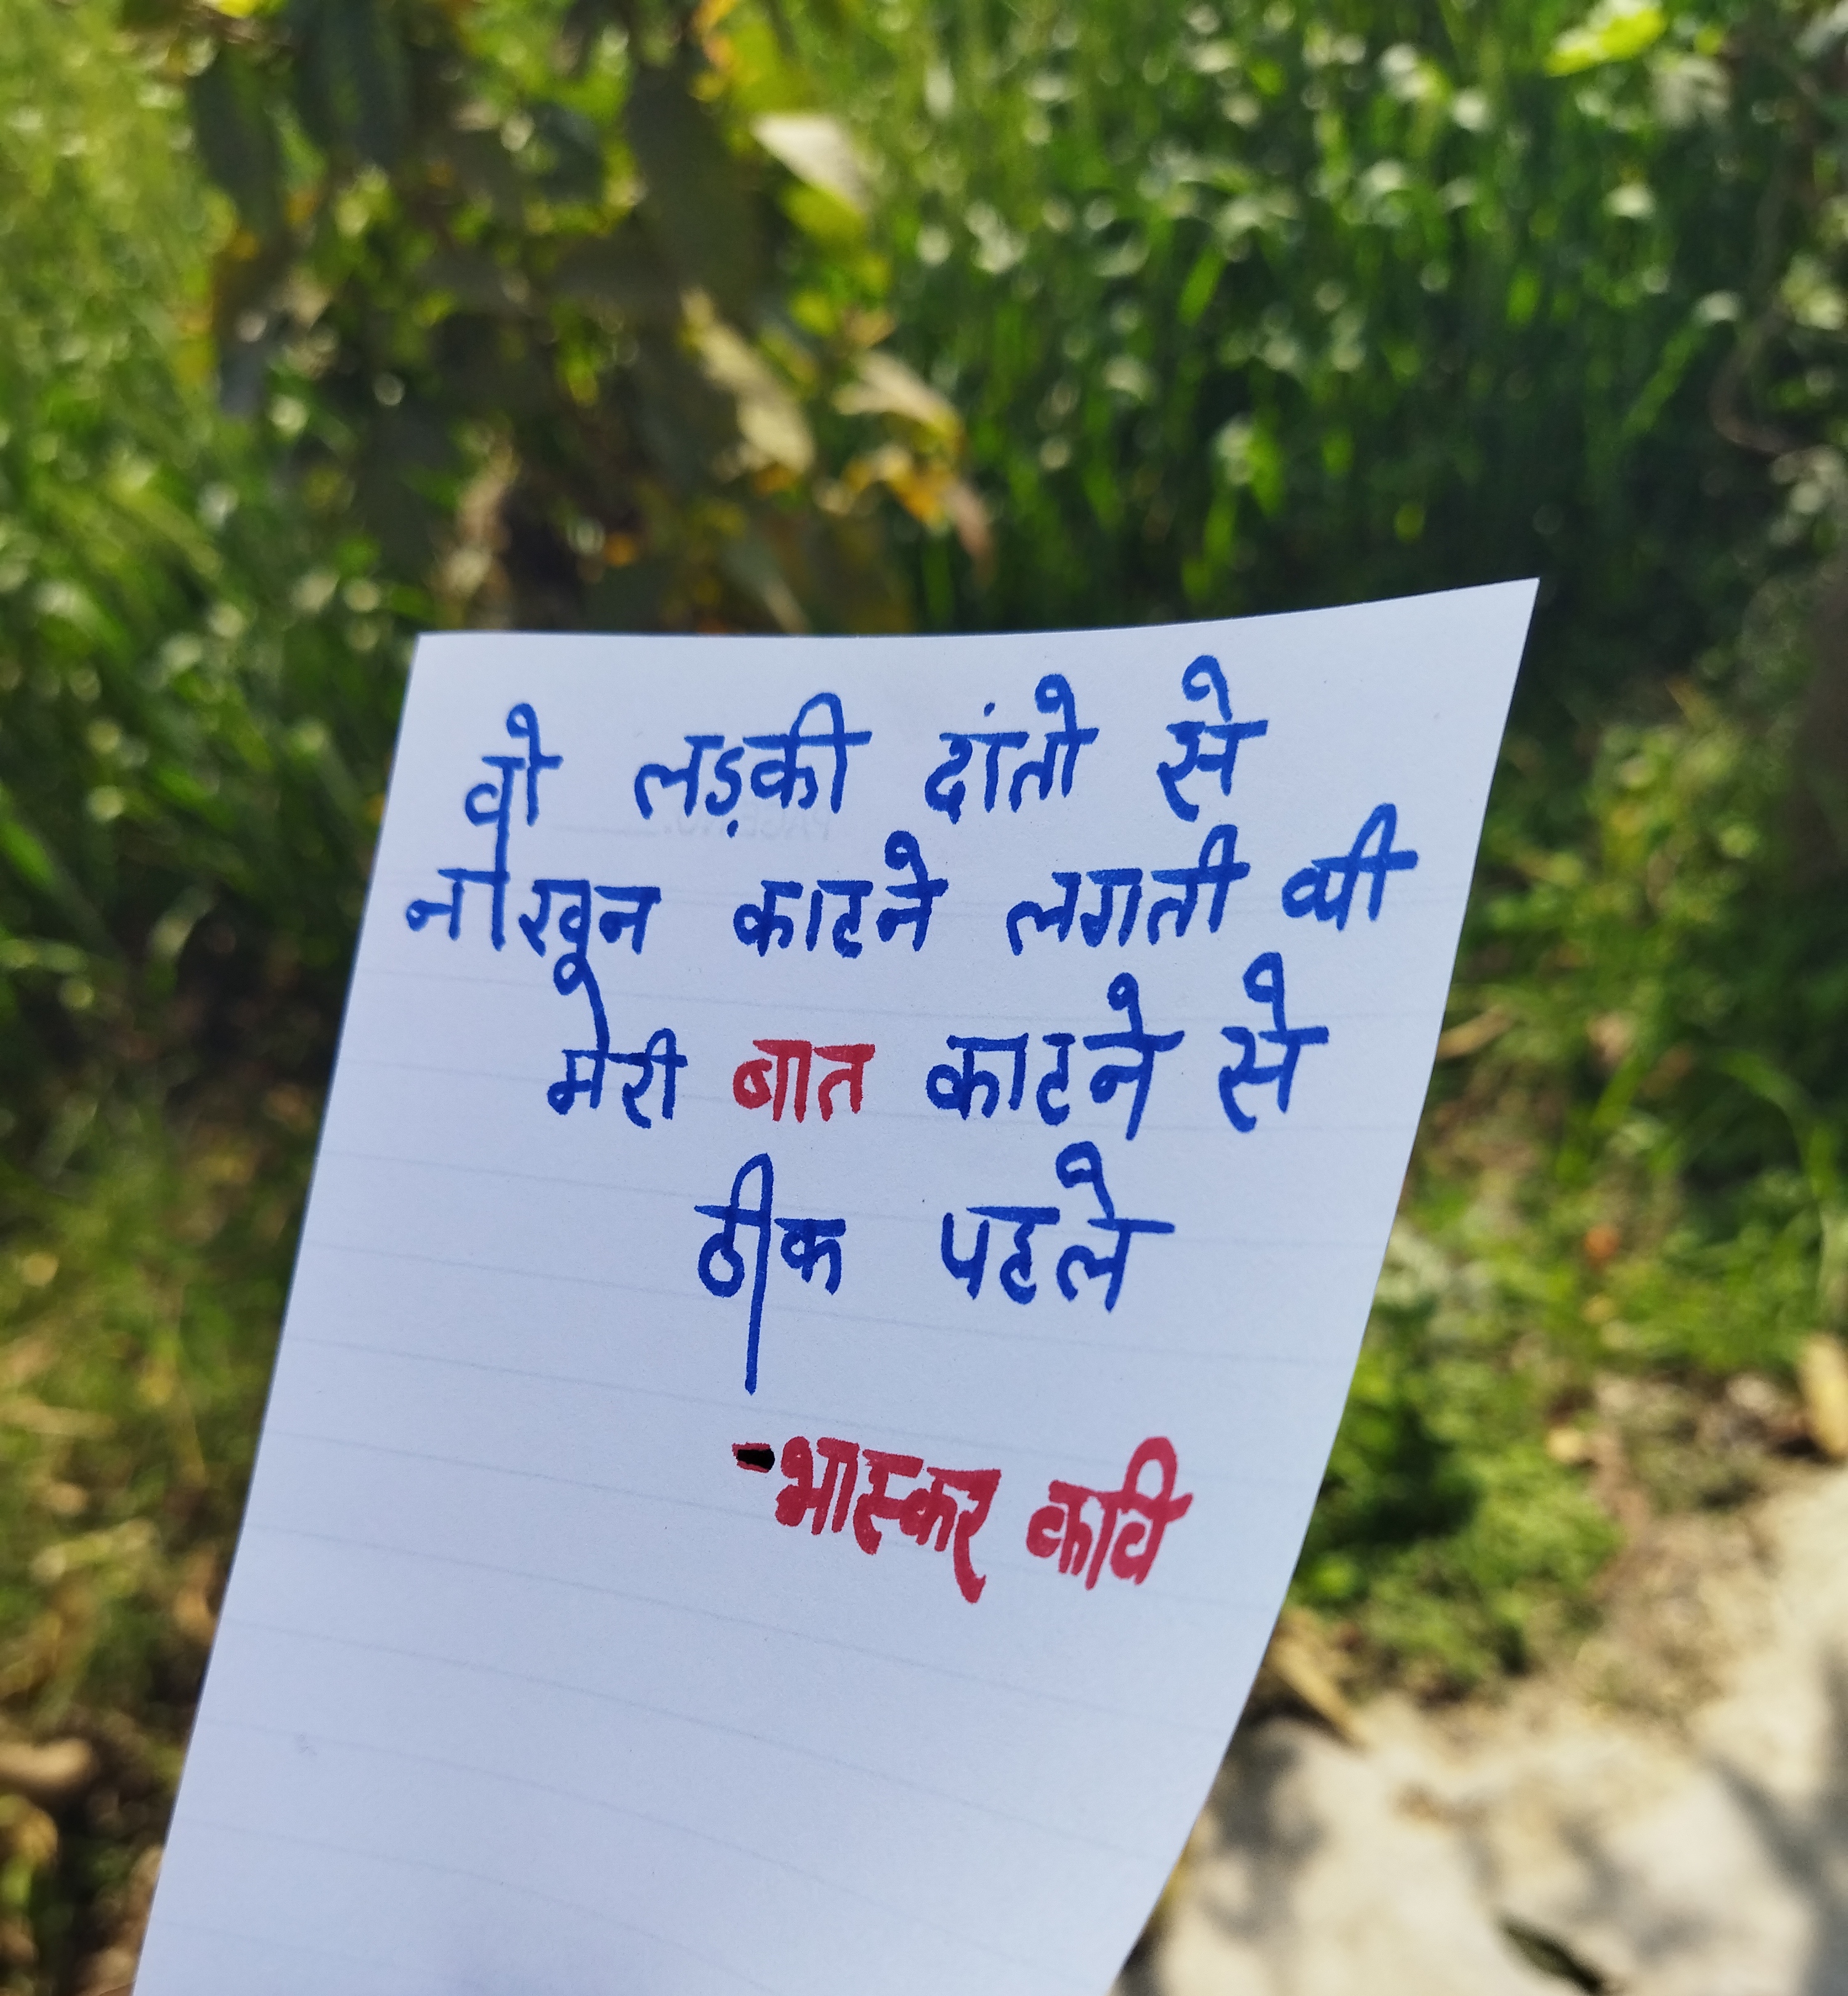 वो लड़की दांतो से
नाखून काटने लगती थी
मेरी बात काटने से
ठीक पहले
-भास्कर कवि